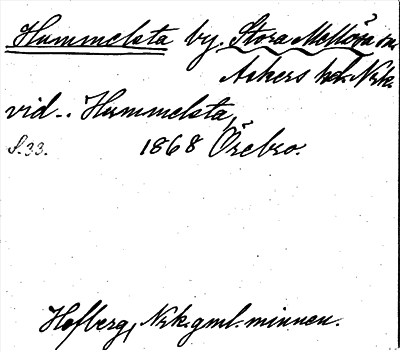 Hummelsta by. Stora Mellösa sn.
Askers hd. Nrk.
vid .. Hummelsta,
S. 33. 1868 Örebro.
Hofberg, Nrk. gml. minnen.